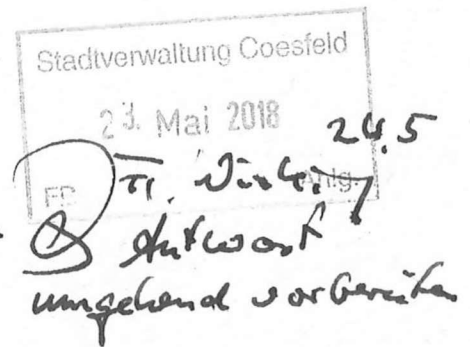 Stadtverwaltung Coesfeld
23. Mai 2018
24.5
FB Anlg.
Antwort
umgehend vorbereiten